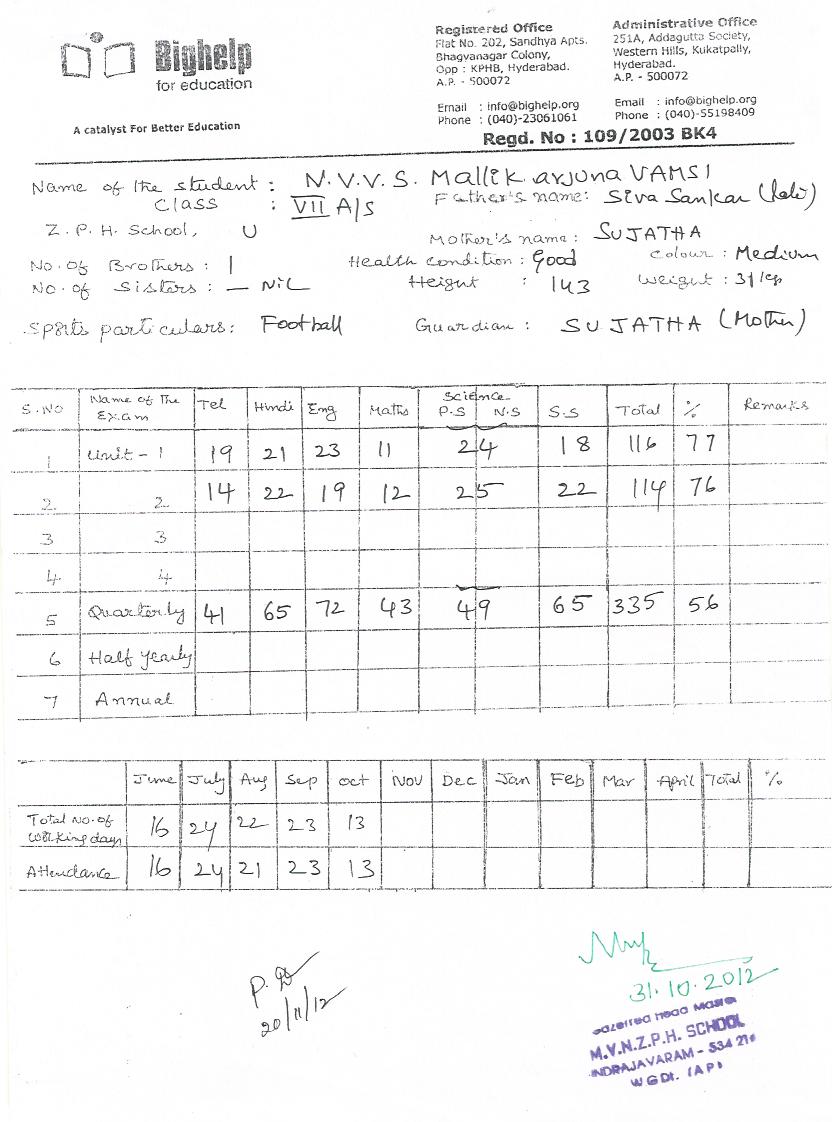 Bighelp
for education
A catalyst For Better Education
Registered Office
Flat No. 202, Sandhya Apts.
Bhagyanagar Colony,
Opp : KPHB, Hyderabad.
A.P. - 500072
Email : info@bighelp.org
Phone : (040)-23061061
Administrative Office
251A, Addagutta Society,
Western Hills, Kukatpally,
Hyderabad.
A.P. - 500072
Email : info@bighelp.org
Phone : (040)-55198409
Regd. No : 109/2003 BK4
Name of the student : N.V.V.S. Mallikarjuna VAMSI
Class : VII A/S Father's name: Siva Sankar (late)
Z. P. H. School, U
Mother's name : SUJATHA
No. of Brothers : 1 Health condition : Good Colour : Medium
No. of Sisters : — NiL Height : 143 Weight : 31 kg
Sports particulars: Football Guardian : SUJATHA (Mother)
S.NO Name of the Exam Tel Hindi Eng Maths Science P.S N.S S.S Total % Remarks
1 Unit - 1 19 21 23 11 24 18 116 77
2 2 14 22 19 12 25 22 114 76
3 3
4. 4
5 Quarterly 41 65 72 43 49 65 335 56
6 Half Yearly
7 Annual
June July Aug Sep Oct Nov Dec Jan Feb Mar April Total %
Total No. of working days 16 24 22 23 13
Attendance 16 24 21 23 13
20/11/12
31.10.2012
Gazetted Head Master
M.V.N.Z.P.H. SCHOOL
INDRAJAVARAM - 534 216
W G Dt. (A P)